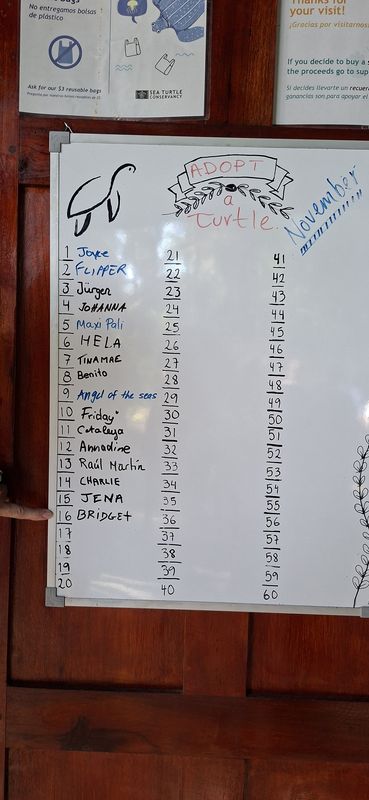 No entregamos bolsas
de plástico
Ask for our $3 reusable bags
SEA TURTLE
CONSERVANCY
Thanks for
your visit!
¡Gracias por visitarnos
If you decide to buy a s
the proceeds go to sup
Si decides llevarte un recuer
ganancias son para apoyar el
ADOPT
a
Turtle.
November
1 Joyce
2 FLIPPER
3 Jürgen
4 JOHANNA
5 Maxi Pali
6 HELA
7 TINAMAE
8 Benito
9 Angel of the seas
10 Friday
11 Cataleya
12 Annadine
13 Raúl Martín
14 CHARLIE
15 JENA
16 BRIDGET
17
18
19
20
21
22
23
24
25
26
27
28
29
30
31
32
33
34
35
36
37
38
39
40
41
42
43
44
45
46
47
48
49
50
51
52
53
54
55
56
57
58
59
60